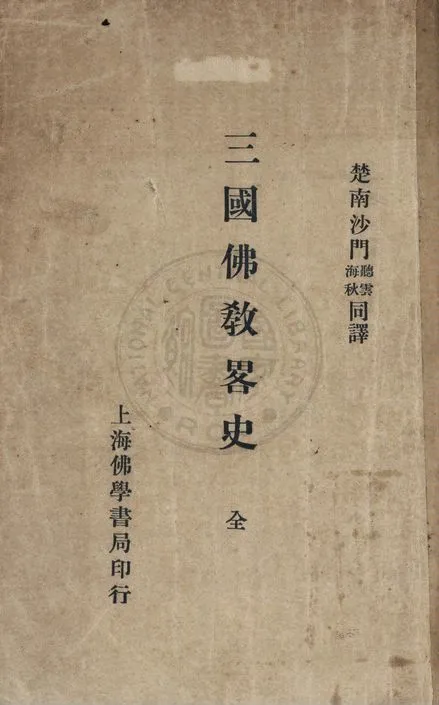 楚南沙門聽雲海秋同譯
三國佛教畧史 全
上海佛學書局印行
NATIONAL CENTRAL LIBRARY